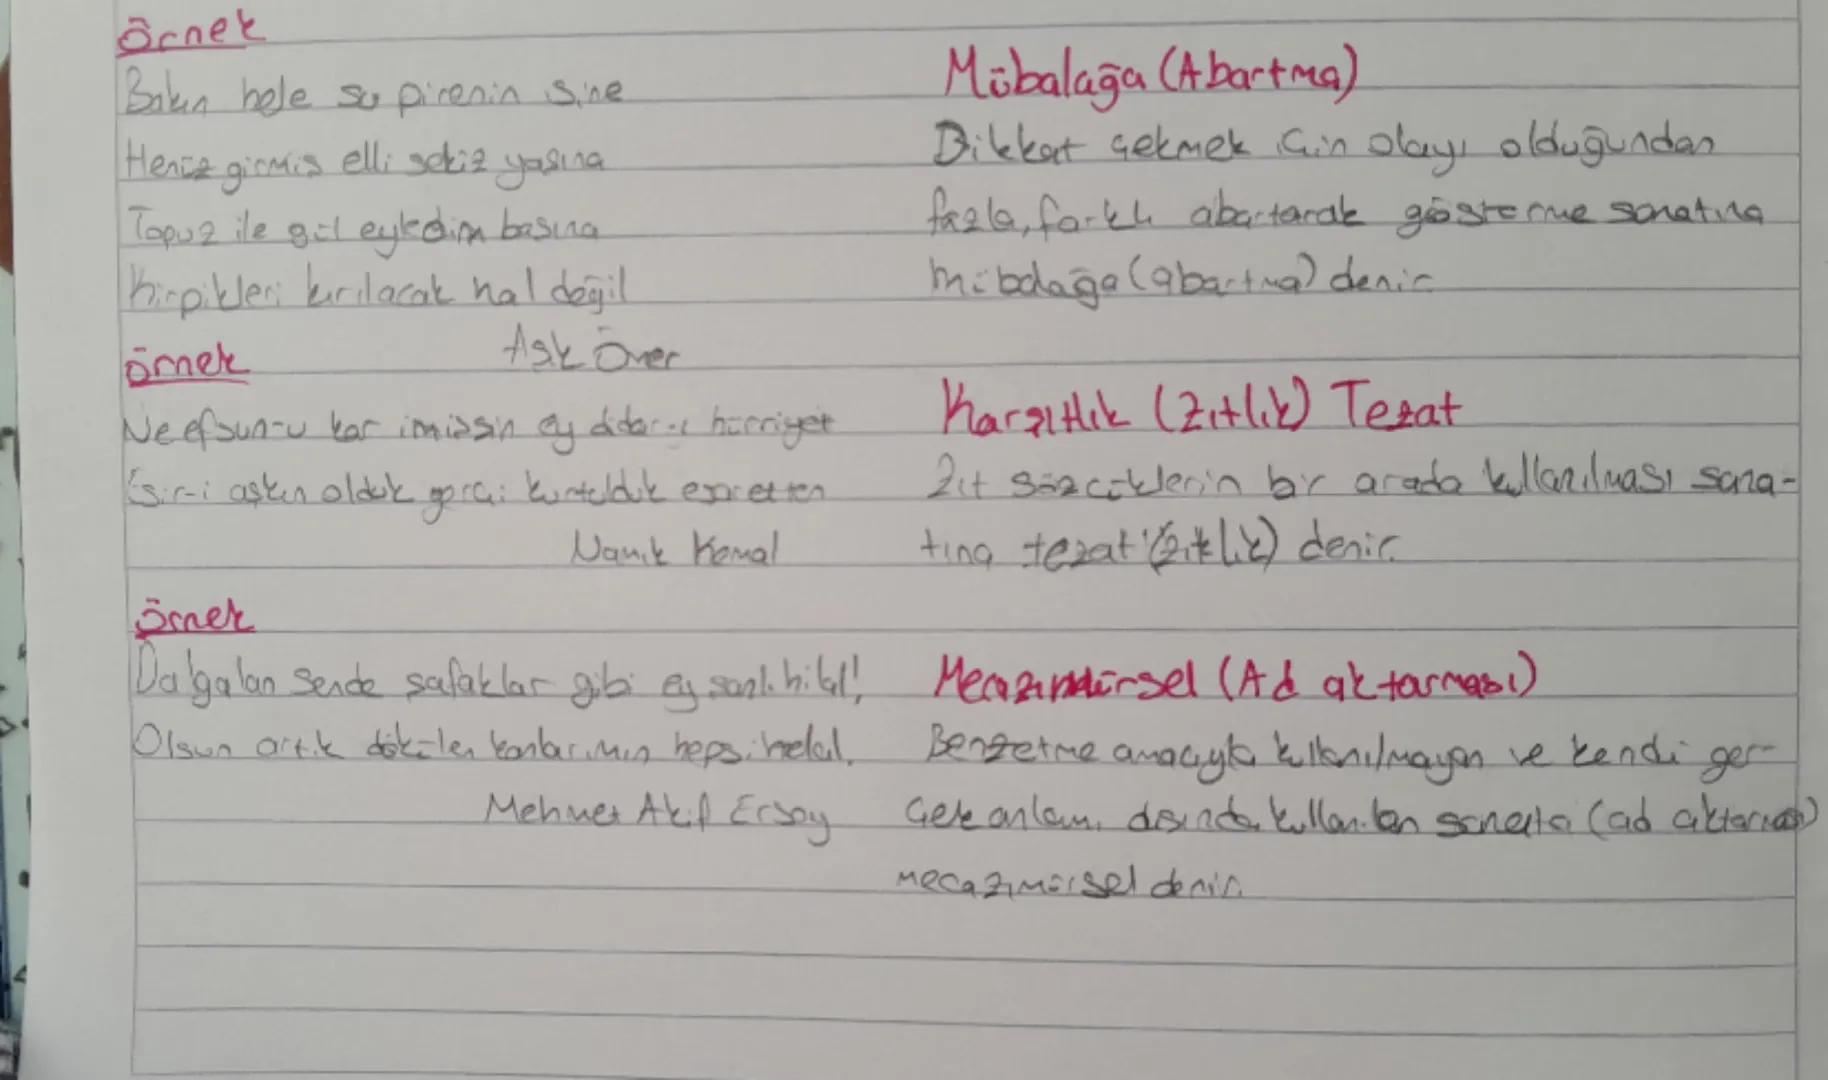 örnek
Bakın hele şu pirenin işine
Henüz girmiş elli sekiz yaşına
Topuz ile gül eyledim başına
Kirpikleri kırılacak hal değil
Aşk Ömer
örnek
Ne efsun-u kar imişsin ey didar-ı hürriyet
Esir-i aşkın olduk gerçi kurtulduk esaretten
Namık Kemal
örnek
Dalgalan sende şafaklar gibi ey şanlı hilal!
Olsun artık dökülen kanlarımın hepsi helal.
Mehmet Akif Ersoy
Mübalağa (Abartma)
Dikkat çekmek için olayı olduğundan
fazla, farklı abartarak gösterme sanatına
mübalağa (abartma) denir
Karşıtlık (Zıtlık) Tezat
Zıt sözcüklerin bir arada kullanılması sana-
tına tezat (zıtlık) denir.
Mecazımürsel (Ad aktarması)
Benzetme amacıyla kullanılmayan ve kendi ger-
çek anlamı dışında kullanılan sanata (ad aktarması)
mecazımürsel denir.